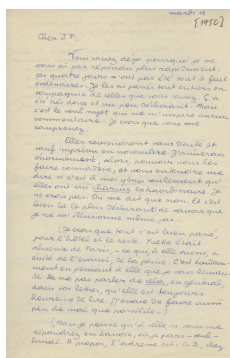 mardi 15
[1950]
Cher J.P.
Vous savez déjà pourquoi je ne
vous ai pas répondu plus rapidement:
ces quatre jours n'ont pas été tout à fait
ordinaires. Je les ai passés tout entiers en
compagnie de celles que vous savez. Ç'a
été très doux et un peu délirant. Mais
c'est le seul sujet qui ne m'inspire aucun
commentaire. Je crois que vous me
comprenez.
Elles reviendront sans doute et
sauf imprévu en novembre. J'aimerais
énormément, alors, pouvoir vous les
faire connaître, et vous entendre me
dire si c'est à mes yeux seulement qu'
elles ont un charme extraordinaire. Je
ne crois pas. On me dit que non. Et c'est
bien là le plus délirant de savoir que
je ne m'illusionne même pas.
(Je crois que tout s'est bien passé,
pour l'hôtel et le reste. Yvette était
absente de Paris, ce qui à elle aussi, a
évité de l'ennui, de la peine. C'est
en pensant à elle que je vous
de ne pas parler de cela, en général,
dans vos lettres, qu'elle est toujours
heureuse de lire. J'essaie de faire aussi
peu de mal que possible.)
(Mais je pense qu'à elle ci vous me
répondrez en
A propos, l'adresse est: G.D., chez